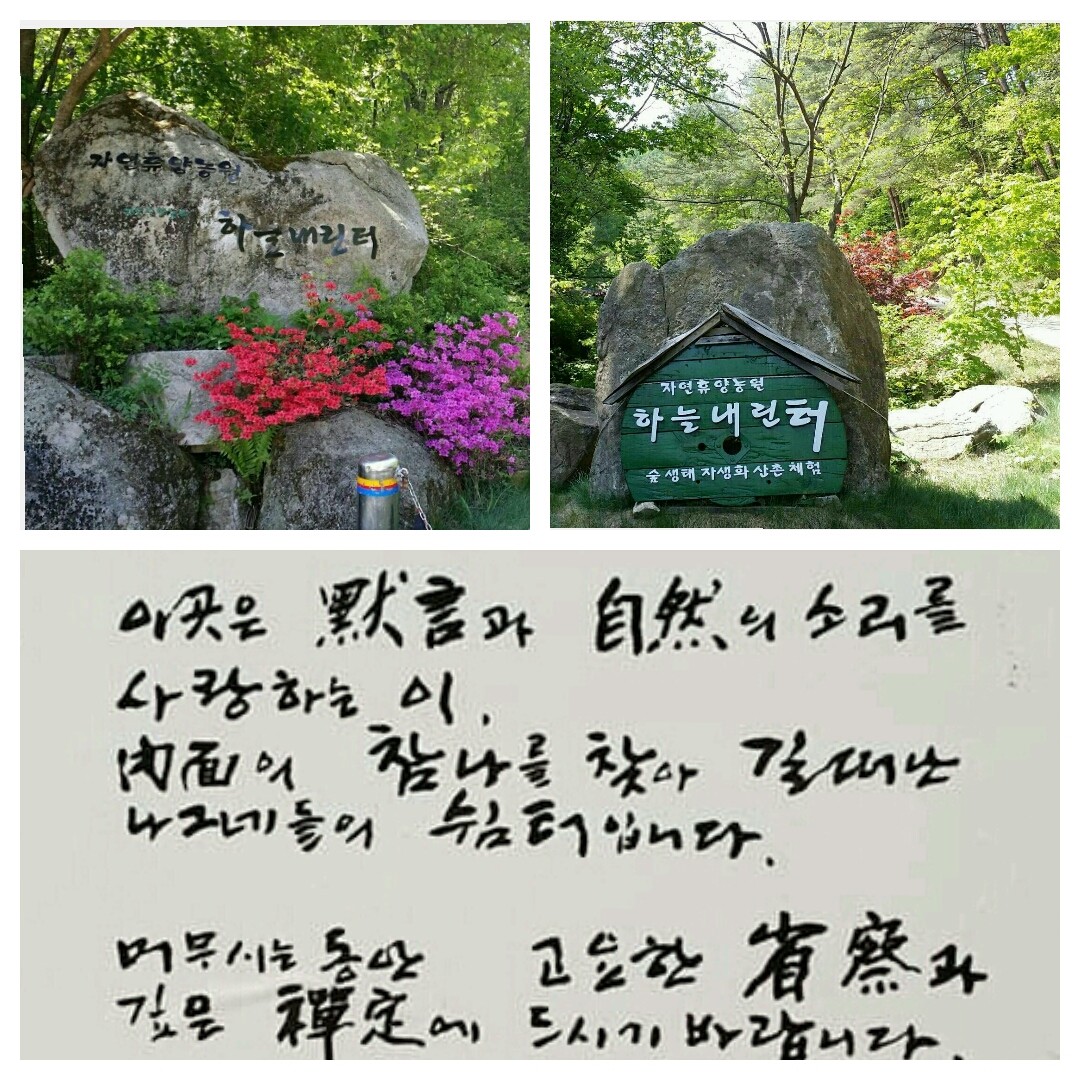 자연휴양농원
하늘내린터
자연휴양농원
하늘내린터
숲생태 자생화 산촌체험
이곳은 默言과 自然의 소리를
사랑하는 이,
内面의 참나를 찾아 길떠난
나그네들의 쉼터입니다.
머무시는동안 고요한 省察과
깊은 禪定에 드시기 바랍니다.